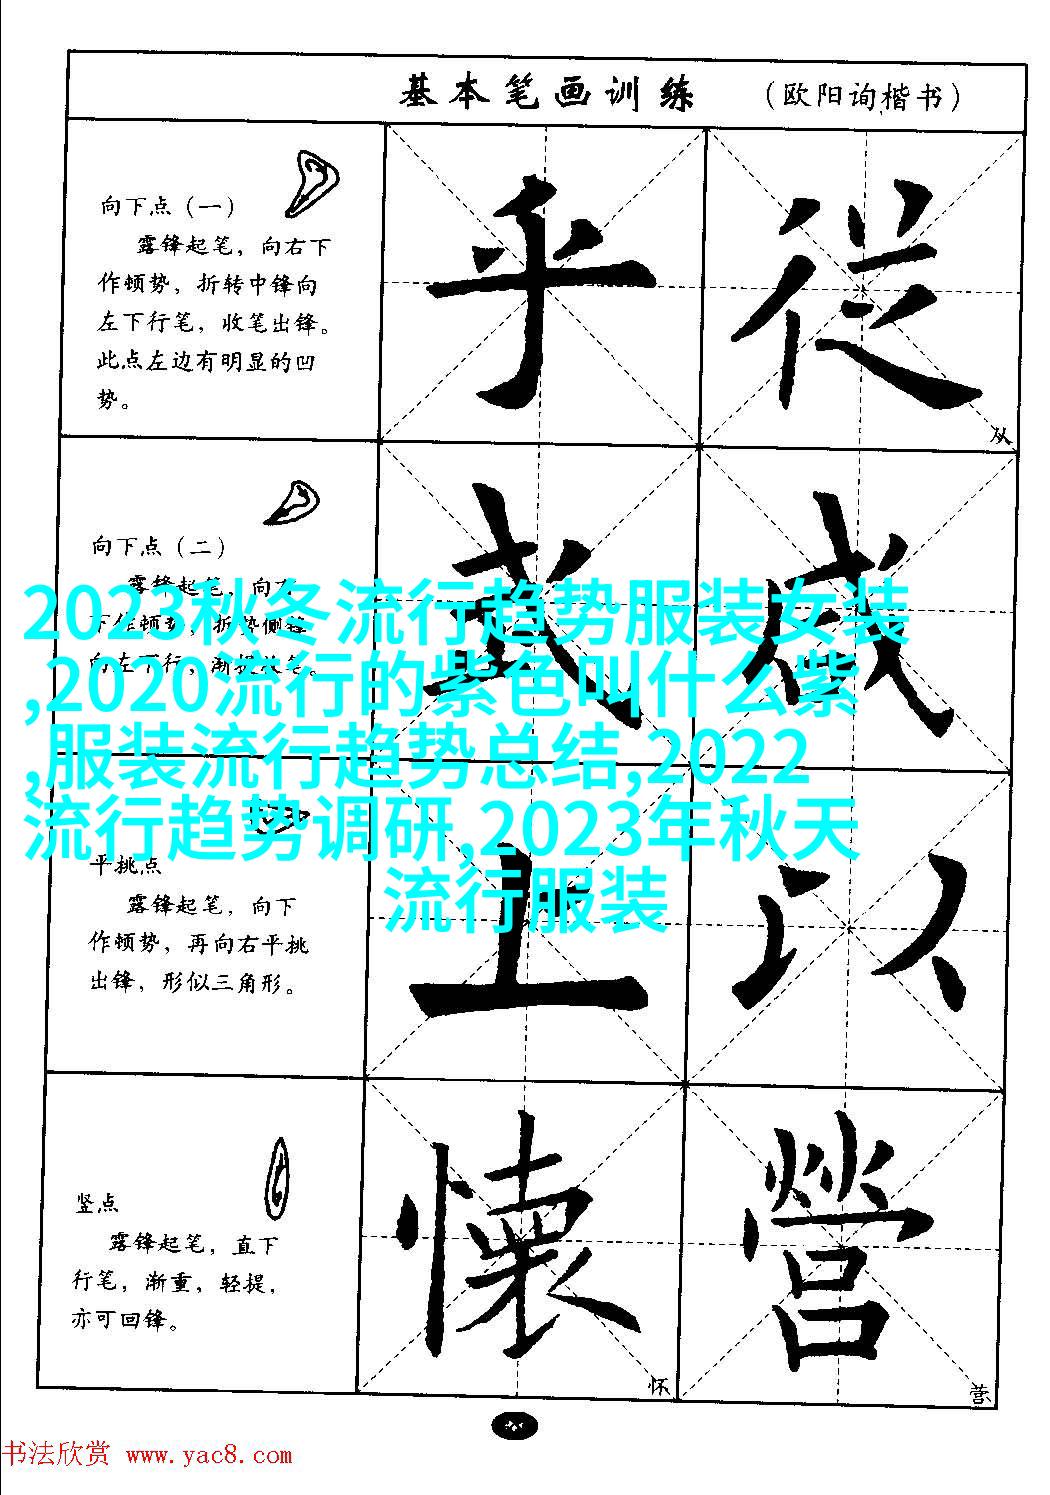 基本笔画训练 （欧阳询楷书）
向下点（一）
露锋起笔，向右下
作顿势，折转中锋向
左下行笔，收笔出锋。
此点左边有明显的凹
势。
乎 從
从
向下点（二）
露锋起笔，向右
下作顿势，折势侧锋
向左下行，渐提收笔。
武 感
2023秋冬流行趋势服装女装
,2020流行的紫色叫什么紫
,服装流行趋势总结,2022
流行趋势调研,2023年秋天
流行服装
平挑点
露锋起笔，向下
作顿势，再向右平挑
出锋，形似三角形。
上 以
竖点
露锋起笔，直下
行笔，渐重，轻提，
亦可回锋。
懷 營
怀 营
书法欣赏 www.yac8.com